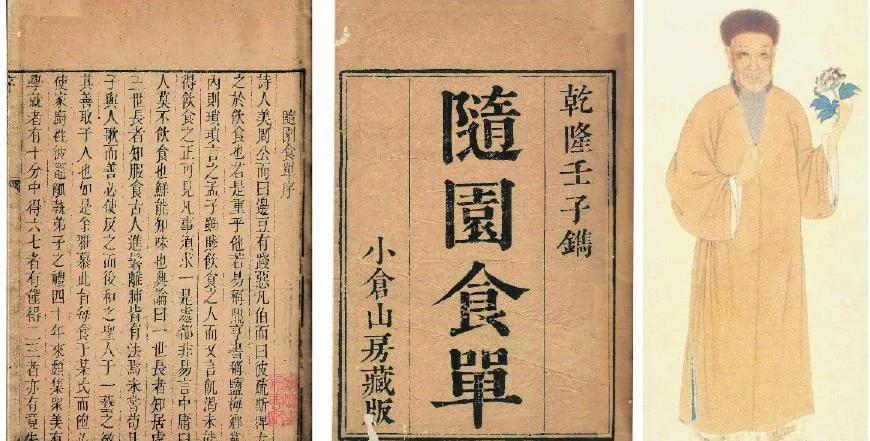 隨園食單序
詩人美周公而曰邊豆有踐惡凡伯而曰彼疏斯稗
之於飲食也若是重乎他若易稱鼎亨書稱鹽梅鄉
內則瑣瑣言之孟子雖賤飲食之人而又言飢渴未能
得飲食之正可見凡事須求一是處都非易言中庸曰
人莫不飲食也鮮能知味也典論曰一世長者知居處
三世長者知服食古人進鬐離肺皆有法焉未嘗苟
子與人歌而善必使反之而後和之聖人于一藝之微
其善取于人也如是余雅慕此旨每食于某氏而飽
使家廚往彼竈觚執弟子之禮四十年來頗集眾美有
學就者有十分中得六七者有僅得二三者亦有竟失
序
乾隆壬子鐫
隨園食單
小倉山房藏版